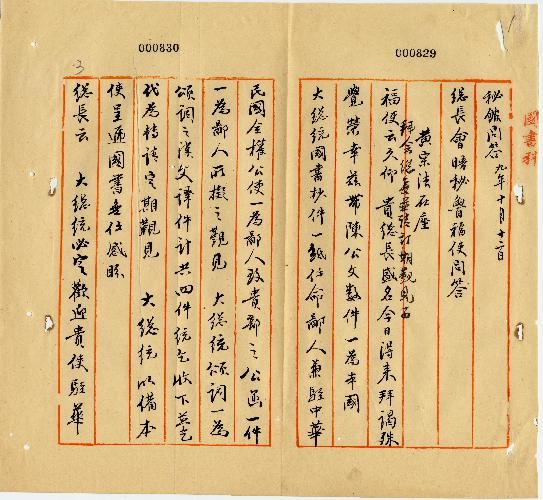 000830
000829
3
國書科
秘館問答 九年十月十三日
總長會晤秘魯福使問答
黃宗法在座
拜會總長並請訂期覲見
福使云久仰 貴總長威名今日得來拜謁殊
覺榮幸茲帶陳公文數件一為本國
大總統國書抄件一紙任命鄙人兼駐中華
民國全權公使一為鄙人致貴部之公函一件
一為鄙人所擬之覲見 大總統頌詞一為
頌詞之漢文譯件計共四件統乞收下並乞
代為轉請定期覲見 大總統以備本
使呈遞國書無任感盼
總長云 大總統必定歡迎貴使駐華